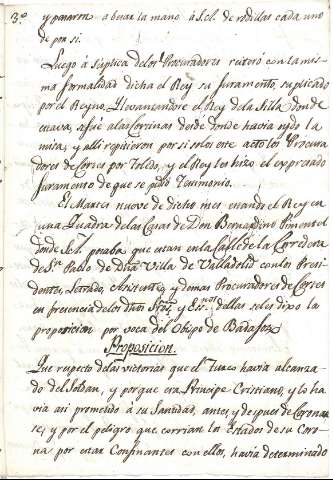 3.º y pararon a besar la mano à S.M. de rodillas cada uno
de por si.
Luego à suplica de los Procuradores reiterò con la mis-
ma formalidad dicha el Rey su Juramento, suplicado
por el Reyno. Llevantandose el Rey de la Silla donde
estava, se fué a las Cortinas desde donde havia oydo la
misa, y alli repitieron por si solos este acto los Procura
dores de Cortes por Toledo, y el Rey los hizo el expresado
Juramento de que se pidió Testimonio.
El Martes nueve de dicho mes estando el Rey en
una Quadra de las Casas de Don Bernardino Pimentel
donde S.M. posaba que estan en la Calle de la Corredera
de S.n Pablo de Dha Villa de Valladolid con los Presi-
dentes, Letrado, Asistentes, y demas Procuradores de Cortes
en presencia de los dhos y Ess.nos de ellas se les dixo la
proposicion por voca del Obispo de Badajoz
Proposicion.
Que respecto de las victorias que el Turco havia alcanza-
do del Soldan, y porque era Principe Cristiano, y lo ha-
via asi prometido à su Santidad, antes, y despues de Coronar
se, y por el peligro que corrian los Estados de su Coro-
na por estar Confinantes con ellos, havia determinado